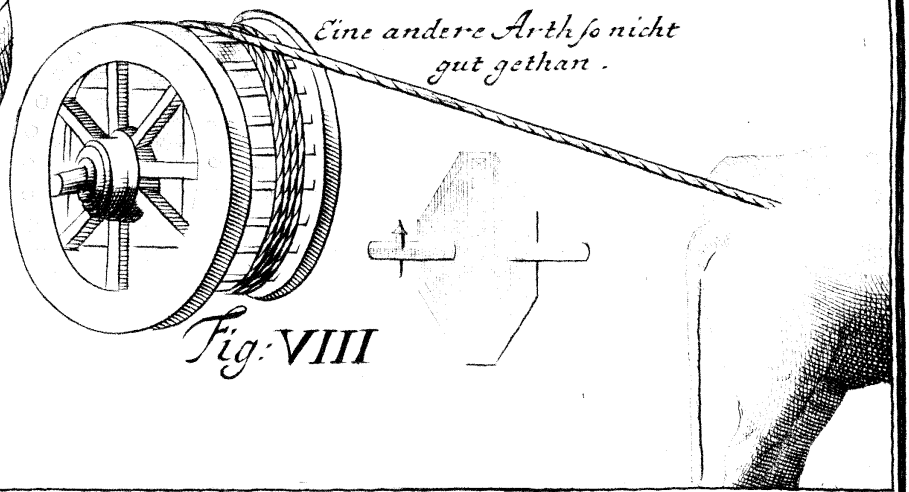 Eine andere Arth so nicht
gut gethan .
Fig: VIII